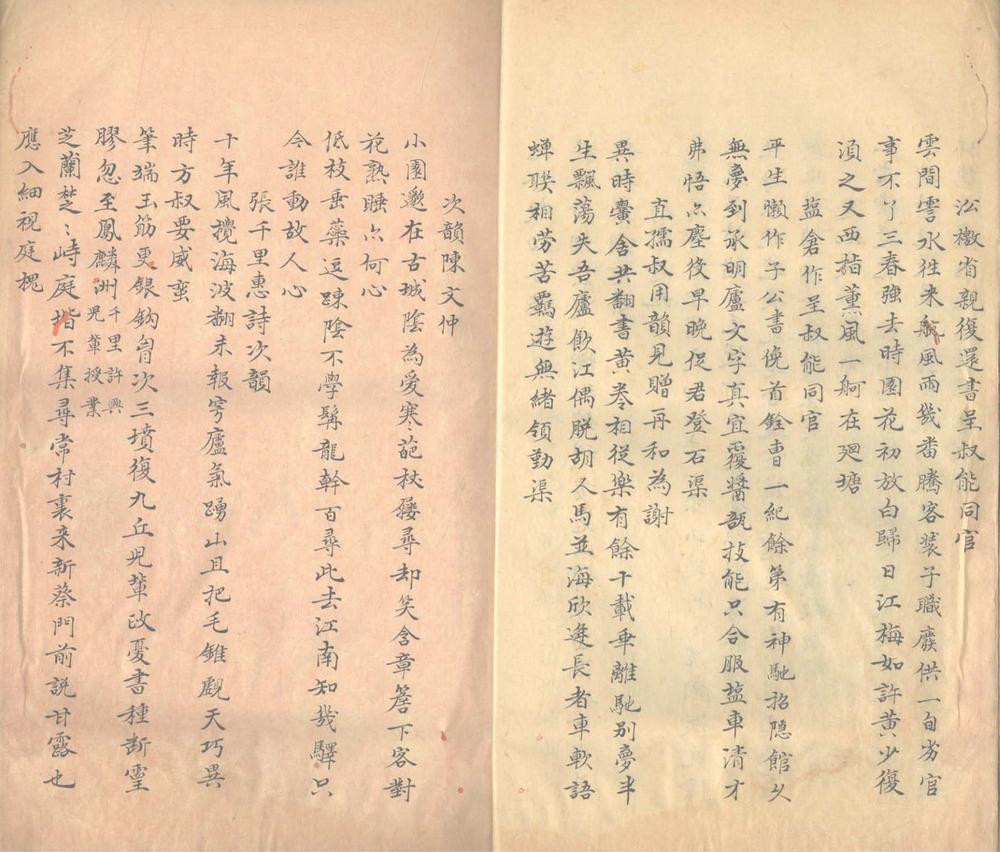 沿檄省親復還書呈叔能同官
雲間霅水徃来航風雨幾番騰客装子職廢供一旬劣官
事不了三春強去時園花初放白歸日江梅如許黄少復
湏之又西指薫風一舸在廻塘
塩倉作呈叔能同官
平生懶作子公書俛首銓曺一紀餘第有神馳招隠館乆
無夢到承明廬文字真宜覆醬瓿技能只合服塩車清才
弗悟亦塵役早晚促君登石渠
直孺叔用韻見贈再和為謝
異時黌舎共翻書黄巻相従樂有餘十載乖離馳别夢半
生飄蕩失吾廬飲江偶脱胡人馬並海欣逢長者車軟語
蝉聨相劳苦羈遊無緒領勤渠
次韻陳文仲
小園邈在古城隂為愛寒葩杖屨尋却笑含章簷下客對
花熟睡亦何心
低枝垂蘂逗踈隂不學髯龍幹百尋此去江南知幾驛只
今誰動故人心
張千里惠詩次韻
十年風攪海波翻未報穹廬氣踴山且把毛錐觑天巧異
時方叔要威蠻
筆端玉筯更銀鈎胷次三墳復九丘児輩改憂書種断靈
膠忽至鳳麟洲千里許興児輩授業
芝蘭楚〻峙庭堦不集尋常村裏来新蔡門前説甘露也
應入細視庭槐